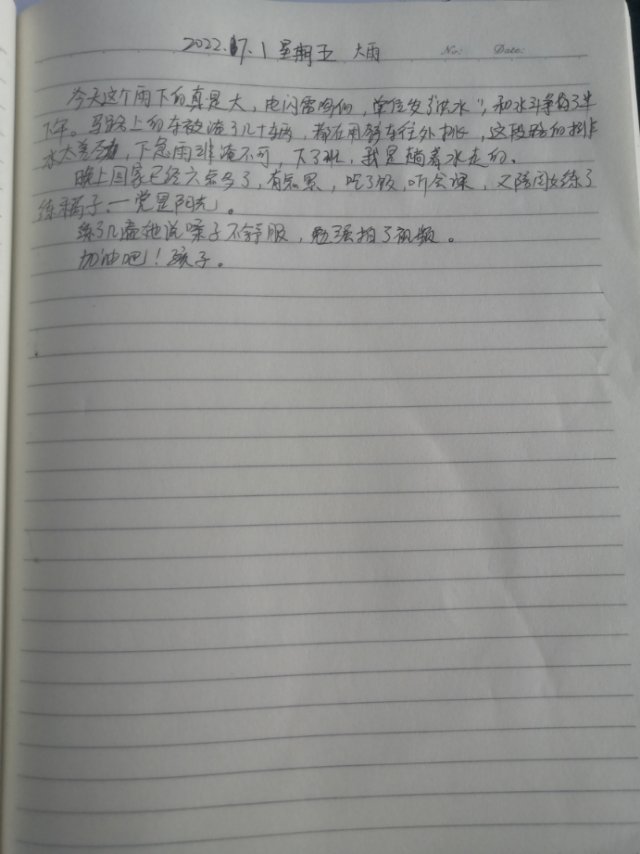 2022.7.1 星期五 大雨 No: Date:
今天这个雨下的真是大,电闪雷鸣的,单位发了"洪水",和水斗争了半
下午。马路上的车被淹了几十辆,都在用拖车往外拖,这段路的排
水太差劲,下急雨非淹不可,下了班,我是趟着水走的。
晚上回家已经六点多了,有点累,吃了饭,听会课,又陪闺女练了
练稿子:一党是阳光」。
练了几遍她说嗓子不舒服,勉强拍了视频。
加油吧!孩子。